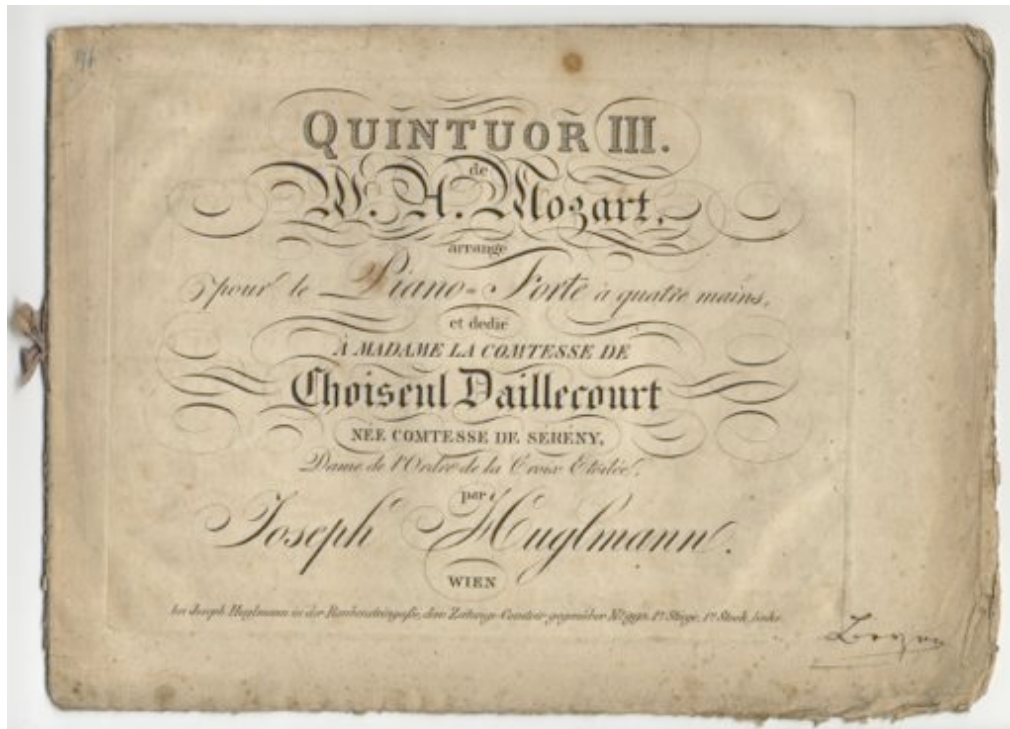 QUINTUOR III.
de
W. A. Mozart,
arrangé
pour le Piano-Forte à quatre mains,
et dedié
À MADAME LA COMTESSE DE
Choiseul Daillecourt
NÉE COMTESSE DE SERENY,
Dame de l'Ordre de la Croix Etoilée,
par
Joseph Huglmann.
WIEN
bei Joseph Huglmann in der Rauhensteingasse, dem Zeitungs-Comtoir gegenüber No. 1te Stiege, 1r Stock, links.